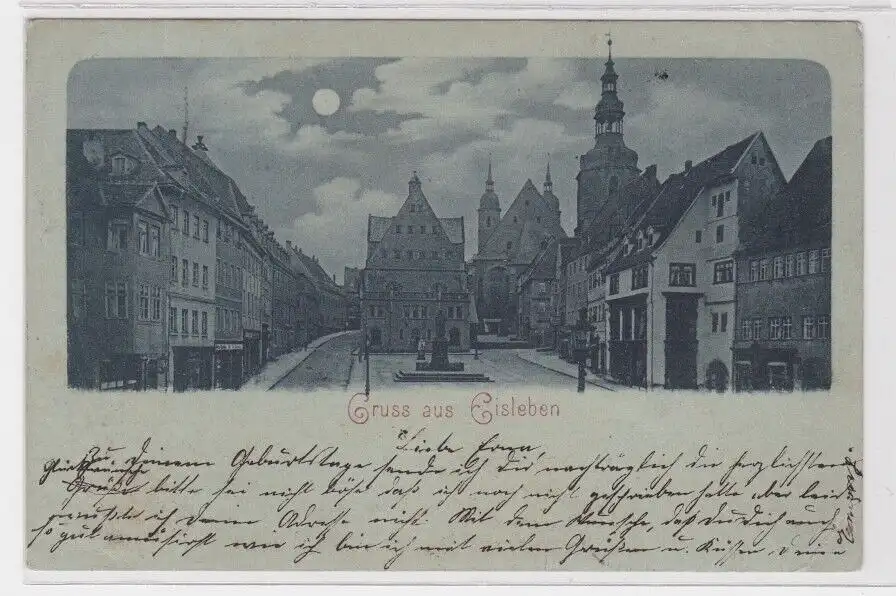 Gruss aus Eisleben
Liebe Erna,
Zu Deinem Geburtstage sende ich Dir nachträglich die herzlichsten
Glückwünsche
Grüße bitte sei nicht böse daß ich noch nicht geschrieben hatte aber leider
wußte ich Deine Adresse nicht. Mit dem Wunsche, daß Du Dich auch
so gut amüsirst wie ich bin ich mit vielen Grüßen u. Küssen Deine